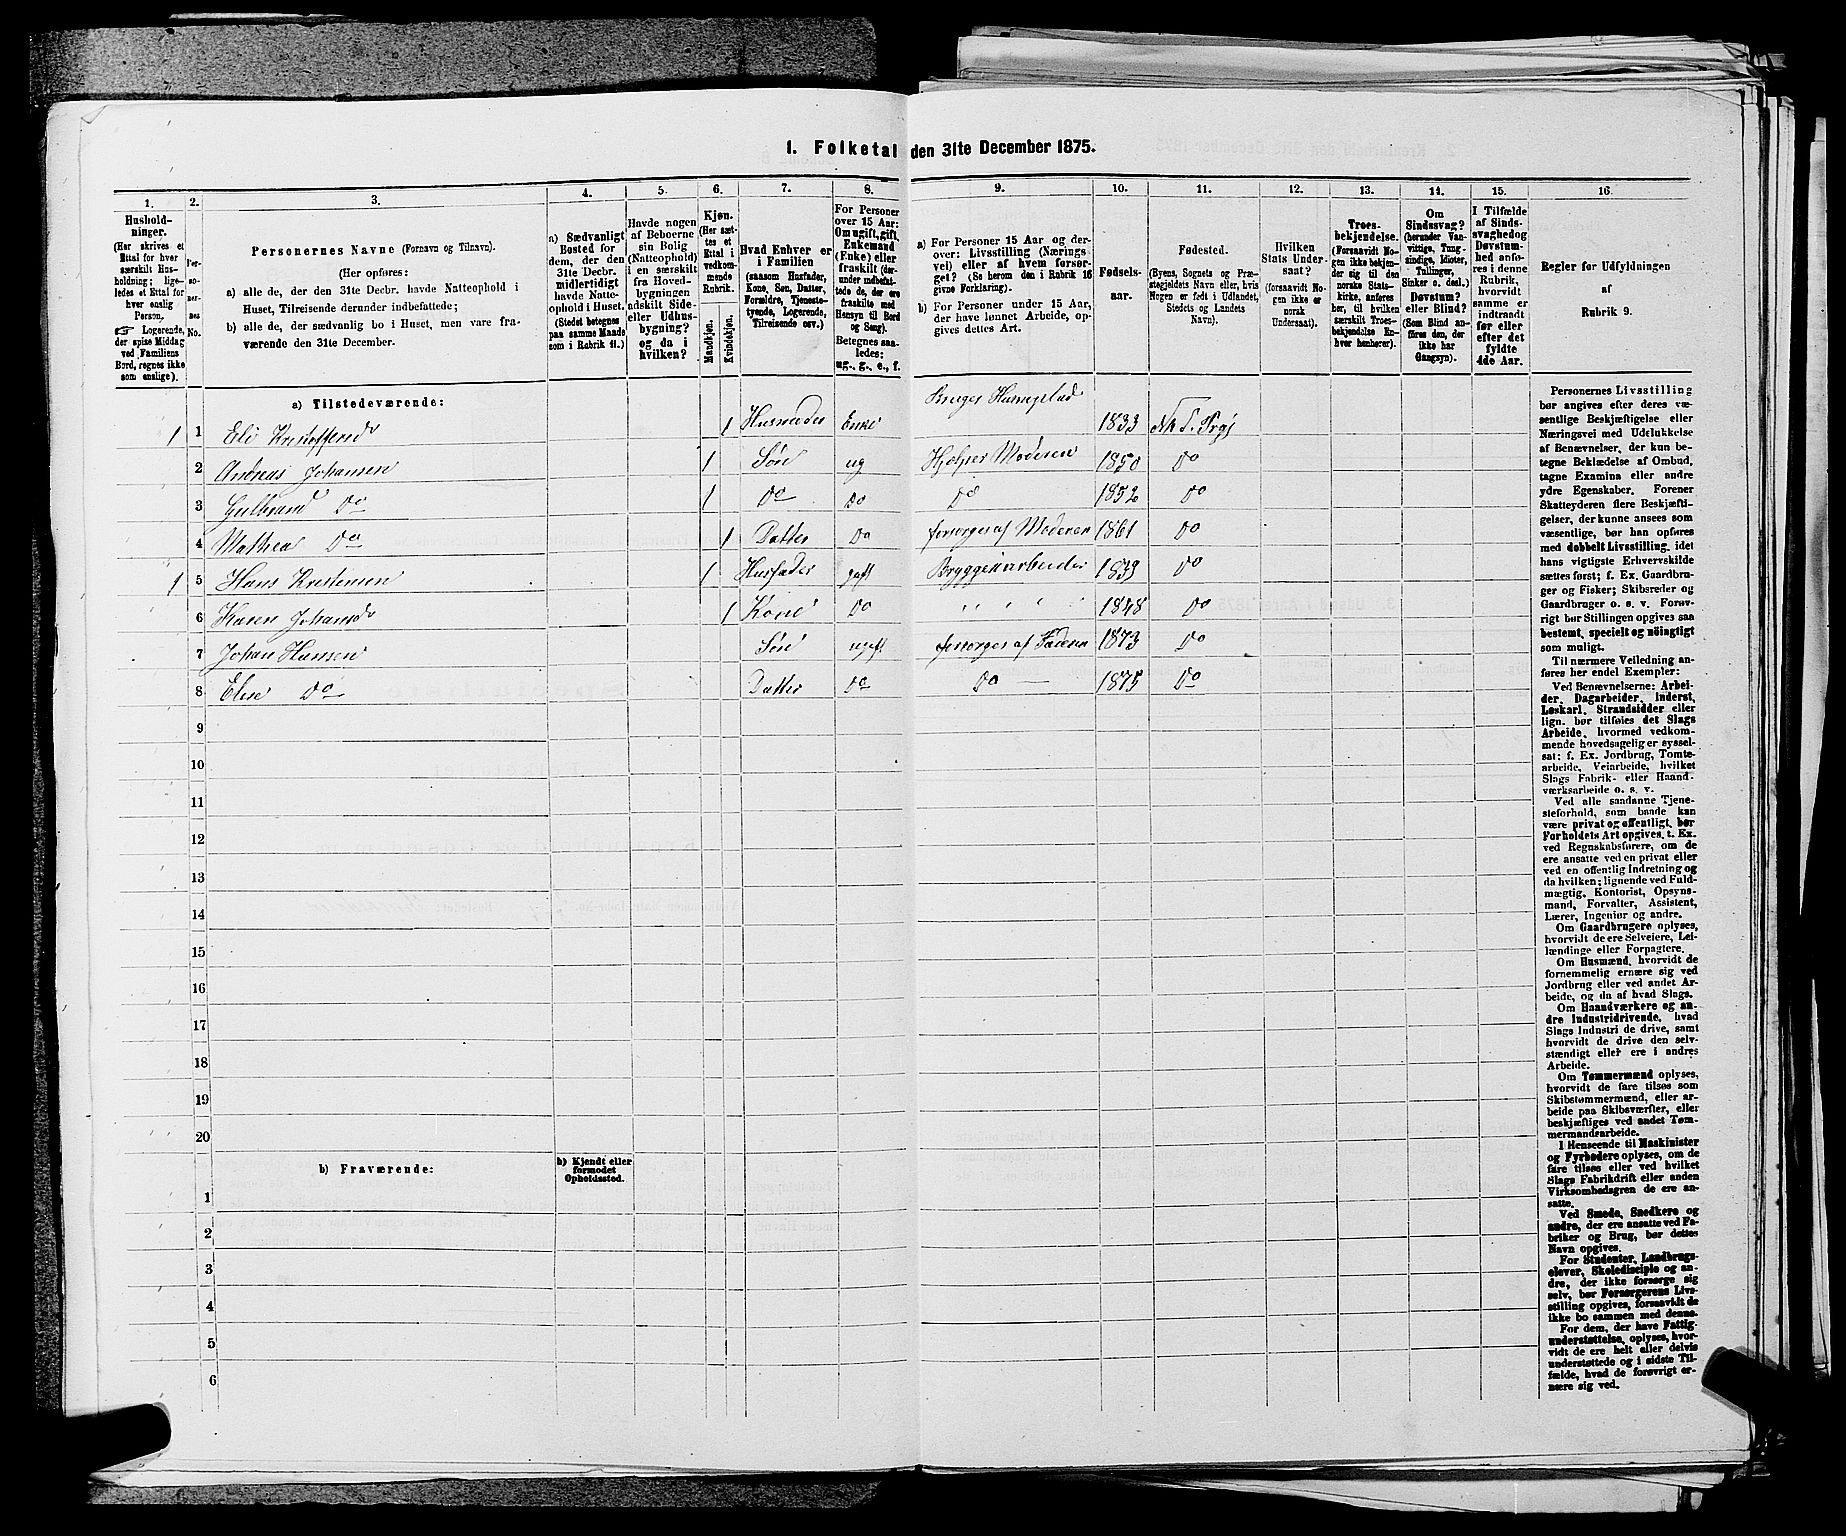 1. Folketal den 31te December 1875.
1.
2.
3.
4.
5.
6.
7.
8.
9.
10.
11.
12.
13.
14.
15.
16.
Hushold-
ninger.
(Her skrives et
Ettal for hver
særskilt Hus-
holdning; lige-
ledes et Ettal for
hver enslig
Person.
☞ Logerende,
der spise Middag
ved Familiens
Bord, regnes ikke
som enslige).
Per-
so-
ner-
nes
No.
Personernes Navne (Fornavn og Tilnavn).
(Her opføres:
a) alle de, der den 31te Decbr. havde Natteophold i
Huset, Tilreisende derunder indbefattede;
b) alle de, der sædvanlig bo i Huset, men vare fra-
værende den 31te December.
a) Sædvanligt
Bosted for
dem, der den
31te Decbr.
midlertidigt
havde Natte-
ophold i Huset.
(Stedet betegnes
paa samme Maade
som i Rubrik 11.)
Havde nogen
af Beboerne
sin Bolig
(Natteophold)
i en særskilt
fra Hoved-
bygningen
adskilt Side-
eller Udhus-
bygning?
og da i
hvilken?
Kjøn.
(Her sæt-
tes et
Ettal i
vedkom-
mende
Rubrik.
Mandkjøn.
Kvindekjøn.
Hvad Enhver er
i Familien
(saasom Husfader,
Kone, Søn, Datter,
Forældre, Tjeneste-
tyende, Logerende,
Tilreisende osv.)
For Personer
over 15 Aar:
Om ugift, gift,
Enkemand
(Enke) eller
fraskilt (der-
under indbefat-
tede de, der ere
fraskilte med
Hensyn til Bord
og Seng).
Betegnes saa-
ledes:
ug., g., e., f.
a) For Personer 15 Aar og der-
over: Livsstilling (Nærings-
vei) eller af hvem forsør-
get? (Se herom den i Rubrik 16
givne Forklaring).
b) For Personer under 15 Aar,
der have lønnet Arbeide, op-
gives dettes Art.
Fødsels-
aar.
Fødested.
(Byens, Sognets og Præ-
stegjeldets Navn eller, hvis
Nogen er født i Udlandet,
Stedets og Landets
Navn).
Hvilken
Stats Under-
saat?
(forsaavidt No-
gen ikke er
norsk
Undersaat).
Troes-
bekjendelse.
(Forsaavidt No-
gen ikke bekjen-
der sig til den
norske Stats-
kirke, anføres
her, til hvilken
særskilt Troes-
bekjendelse En-
hver henhører).
Om
Sindssvag?
(herunder Van-
vittige, Tung-
sindige, Idioter,
Tullinger,
Sinker o. desl.)
Døvstum?
eller Blind?
(Som Blind an-
føres den, der
ikke har
Gangsyn).
I Tilfælde
af Sinds-
svaghed og
Døvstum-
hed anfø-
res i denne
Rubrik,
hvorvidt
samme er
indtraadt
før eller
efter det
fyldte
4de Aar.
Regler for Udfyldningen
af
Rubrik 9.
a) Tilstedeværende:
Bruger Husmplad
1 1 Eli Kristoffersd 1 Husmoder Enke 1833
2 Andreas Johansen 1 Søn ug Hjelper Moderen 1850 Do
3 Gulbrand Do 1 Do Do Do 1852 Do
4 Mathea Do 1 Datter Do forsørges af Moderen 1861 Do
1 5 Hans Kristensen 1 Husfader gift Bryggeriarbeider 1839 Do
6 Karen Johansd 1 Kone Do 1848 Do
7 Johan Hansen Søn ugift forsørges af Faderen 1873 Do
8 Elise Do Datter Do Do 1875 Do
9
10
11
12
13
14
15
16
17
18
19
20
b) Fraværende:
b) Kjendt eller
formodet
Opholdssted.
1
2
3
4
5
6
Personernes Livsstilling
bør angives efter deres væ-
sentlige Beskjæftigelse eller
Næringsvei med Udelukkelse
af Benævnelser, der kun be-
tegne Beklædelse af Ombud,
tagne Examina eller andre
ydre Egenskaber. Forener
Skatteyderen flere Beskjæfti-
gelser, der kunne ansees som
væsentlige, bør han opføres
med dobbelt Livsstilling, idet
hans vigtigste Erhvervskilde
sættes først; f. Ex. Gaardbru-
ger og Fisker; Skibsreder og
Gaardbruger o. s. v. Forøv-
rigt bør Stillingen opgives saa
bestemt, specielt og nøiagtigt
som muligt.
Til nærmere Veiledning an-
føres her endel Exempler:
Ved Benævnelserne: Arbei-
der, Dagarbeider, Inderst,
Løskarl, Strandsidder eller
lign. bør tilføies det Slags
Arbeide, hvormed vedkom-
mende hovedsagelig er syssel-
sat; f. Ex. Jordbrug, Tomte-
arbeide, Veiarbeide, hvilket
Slags Fabrik- eller Haand-
værksarbeide o. s. v.
Ved alle saadanne Tjene-
steforhold, som baade kan
være privat og offentligt, bør
Forholdets Art opgives, t. Ex.
ved Regnskabsførere, om de
ere ansatte ved en privat eller
ved en offentlig Indretning og
da hvilken; lignende ved Fuld-
mægtig, Kontorist, Opsyns-
mand, Forvalter, Assistent,
Lærer, Ingeniør og andre.
Om Gaardbrugere oplyses,
hvorvidt de ere Selveiere, Lei-
lændinge eller Forpagtere.
Om Husmænd, hvorvidt de
fornemmelig ernære sig ved
Jordbrug eller ved andet Ar-
beide, og da af hvad Slags.
Om Haandværkere og an-
dre Industridrivende, hvad
Slags Industri de drive, samt
hvorvidt de drive den selv-
stændigt eller ere i andres
Arbeide.
Om Tømmermænd oplyses,
hvorvidt de fare tilsøs som
Skibstømmermænd, eller ar-
beide paa Skibsværfter, eller
beskjæftiges ved andet Tøm-
mermandsarbeide.
I Henseende til Maskinister
og Fyrbødere oplyses, om de
fare tilsøs eller ved hvilket
Slags Fabrikdrift eller anden
Virksomhedsgren de ere an-
satte.
Ved Smede, Snedkere og
andre, der ere ansatte ved Fa-
briker og Brug, bør dettes
Navn opgives.
For Studenter, Landbrugs-
elever, Skoledisciple og an-
dre, der ikke forsørge sig
selv, bør Forsørgerens Livs-
stilling opgives, forsaavidt de
ikke bo sammen med denne.
For dem, der have Fattig-
understøttelse, oplyses, hvor-
vidt de ere helt eller delvis
understøttede og i sidste Til-
fælde, hvad de forøvrigt er-
nære sig ved.